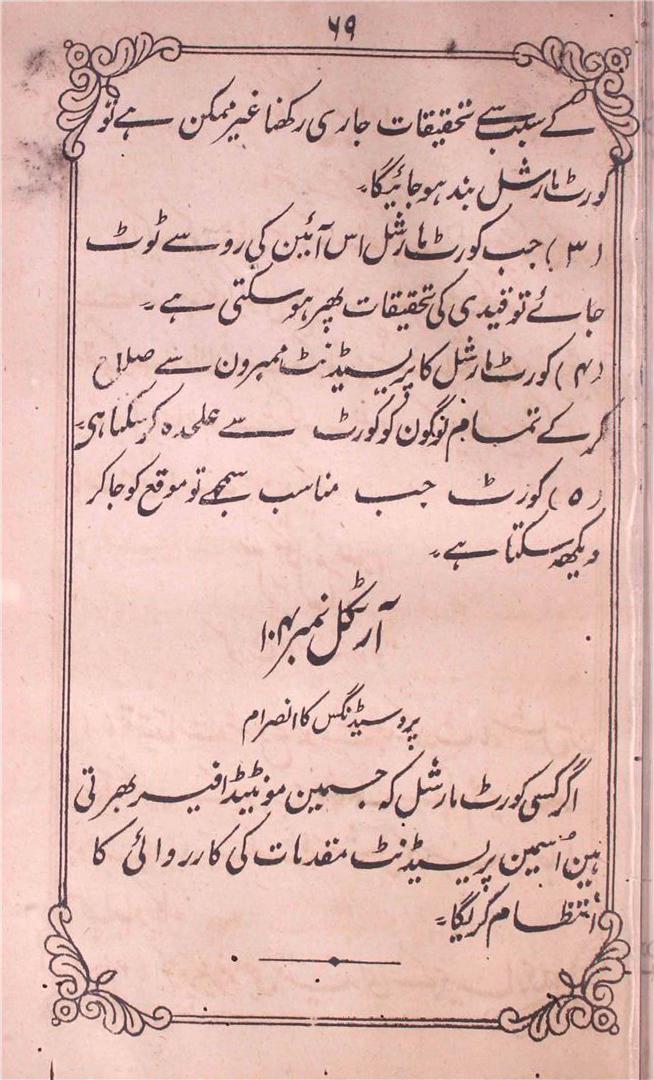 ۶۹
کے سبب سے تحقیقات جاری رکھنا غیر ممکن ہے تو
کورٹ مارشل بند ہو جائیگا۔
(۳) جب کورٹ مارشل اس آئین کی رو سے ٹوٹ
جائے تو قیدی کی تحقیقات پھر ہو سکتی ہے۔
(۴) کورٹ مارشل کا پریسیڈنٹ ممبرون سے صلاح
کر کے تمام لوگون کو کورٹ سے علحدہ کر سکتا ہی۔
(۵) کورٹ جب مناسب سمجھے تو موقع کو جا کر
دیکھ سکتا ہے۔
آرٹکل نمبر ۱۰۴
پروسیڈنگس کا انصرام
اگر کسی کورٹ مارشل کہ جسمین مونٹیڈ افیسر بھرتی
ہین اُسمین پریسیڈنٹ مقدمات کی کارروائی کا
انتظام کریگا۔